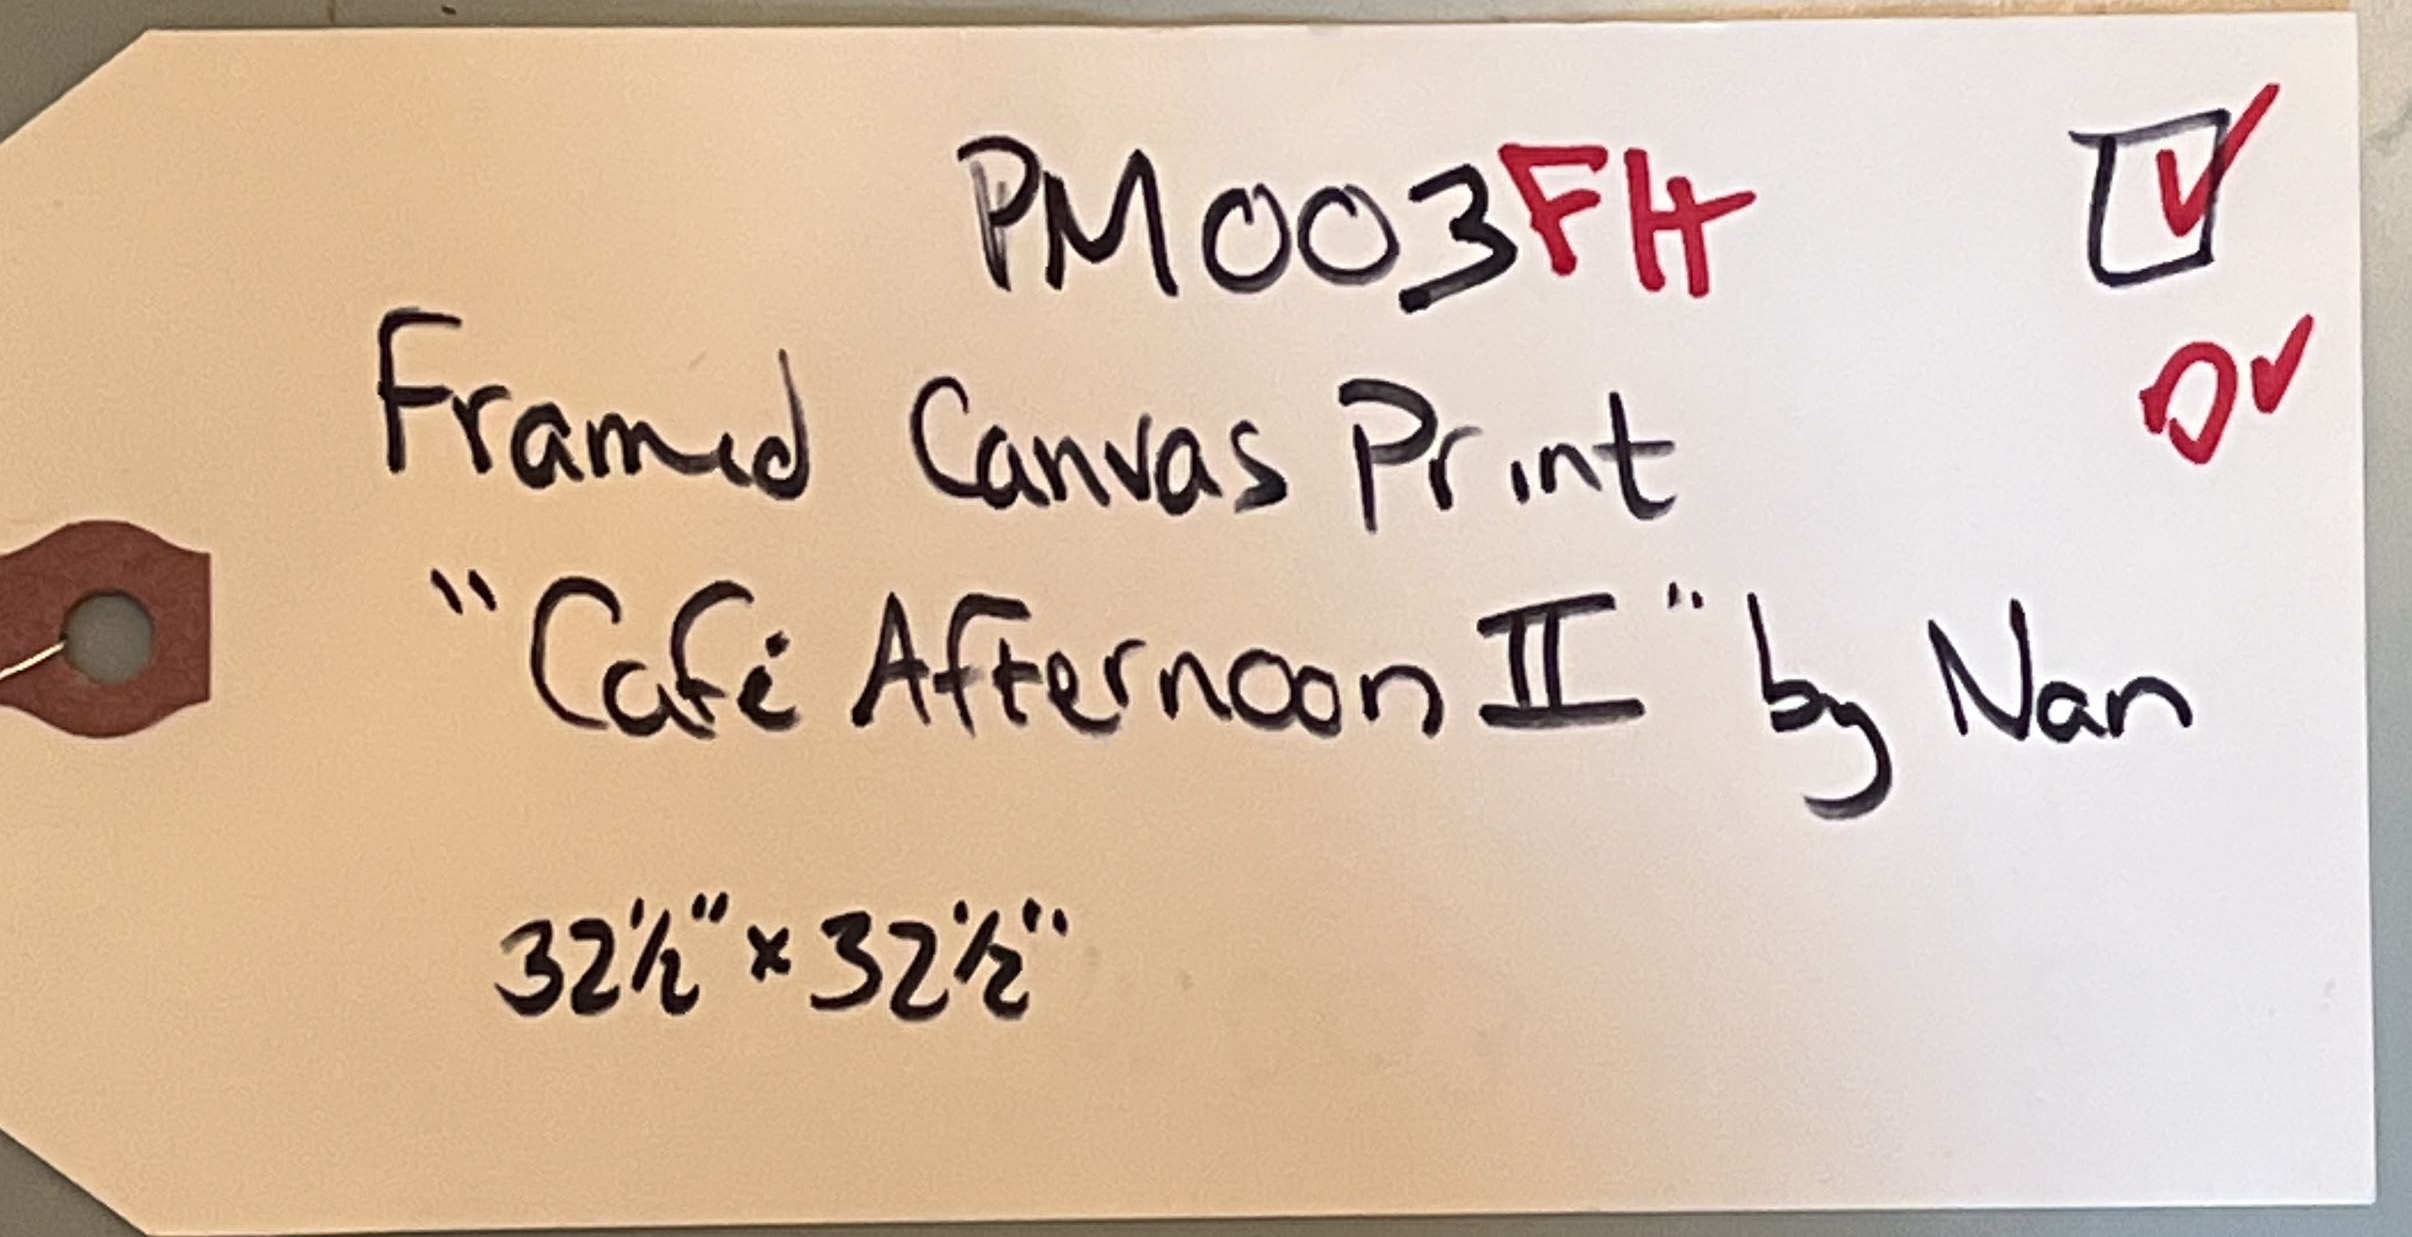 PM003FH ☑
Framed Canvas Print D✓
"Café Afternoon II" by Nan
32½" x 32½"